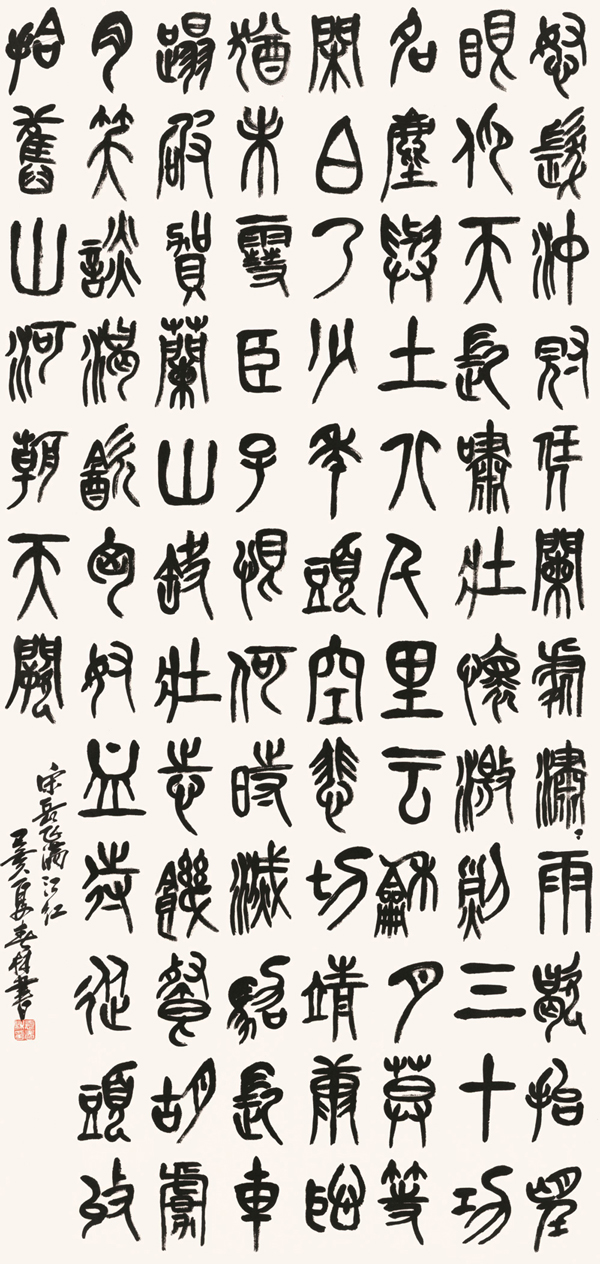 怒髮沖冠凭闌處瀟〻雨歇抬望
眼仰天長嘯壯懷激烈三十功
名塵與土八千里云龢月莫等
閑白了少年頭空悲切靖康恥
猶未雪臣子恨何時滅駕長車
踏破賀蘭山缺壯志飢餐胡虜
肉笑談渴飲匈奴血待從頭收
拾舊山河朝天闕
宋岳飛滿江紅
亥夏書